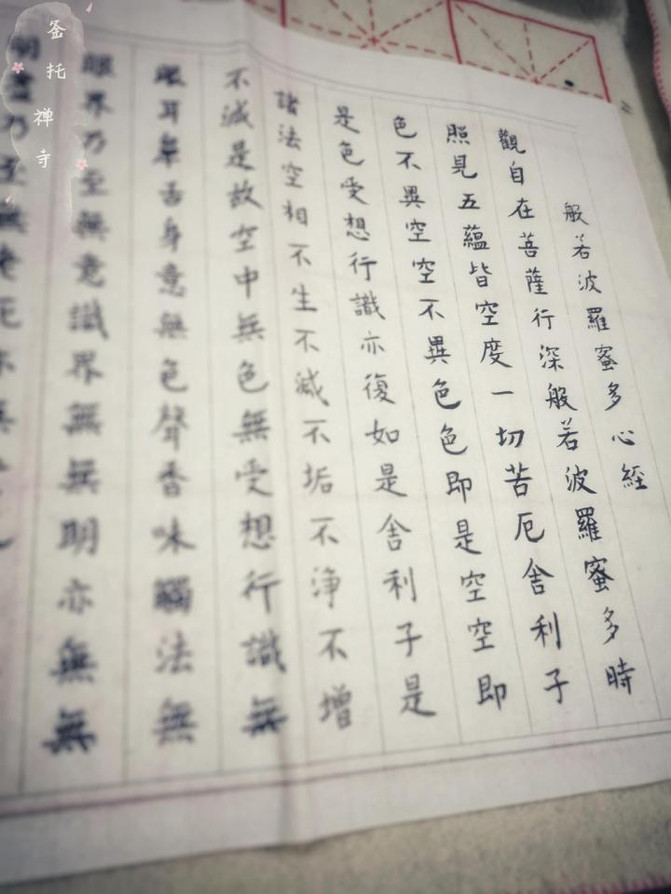 般若波羅蜜多心經
觀自在菩薩行深般若波羅蜜多時
照見五蘊皆空度一切苦厄舍利子
色不異空空不異色色即是空空即
是色受想行識亦復如是舍利子是
諸法空相不生不滅不垢不淨不增
不減是故空中無色無受想行識無
眼耳鼻舌身意無色聲香味觸法無
眼界乃至無意識界無無明亦無無
明盡乃至無老死亦無
釜托禅寺